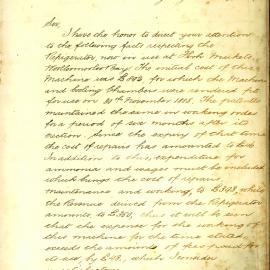 Sir,
I have the honor to direct your attention
to the following facts respecting the
Refrigerator now in use at Fish Markets
Woolloomooloo Bay. The initial cost of this
Machine was £ for which the Machine
and Cooling Chambers were rendered fit
for use on November 1888. The patentee
maintained the same in working order
for a period of six months after its
erection. Since the expiry of that time
the cost of repairs has amounted to £
In addition to this, expenditure for
ammonia and wages must be included
which brings the cost of repairs
maintenance and working, to £348, while
the Revenue derived from the Refrigerator
amounts to £250; thus it will be seen
that the expense for the working of
this machine for the time stated
exceeds the amounts of fees paid for
its use, by £98, which